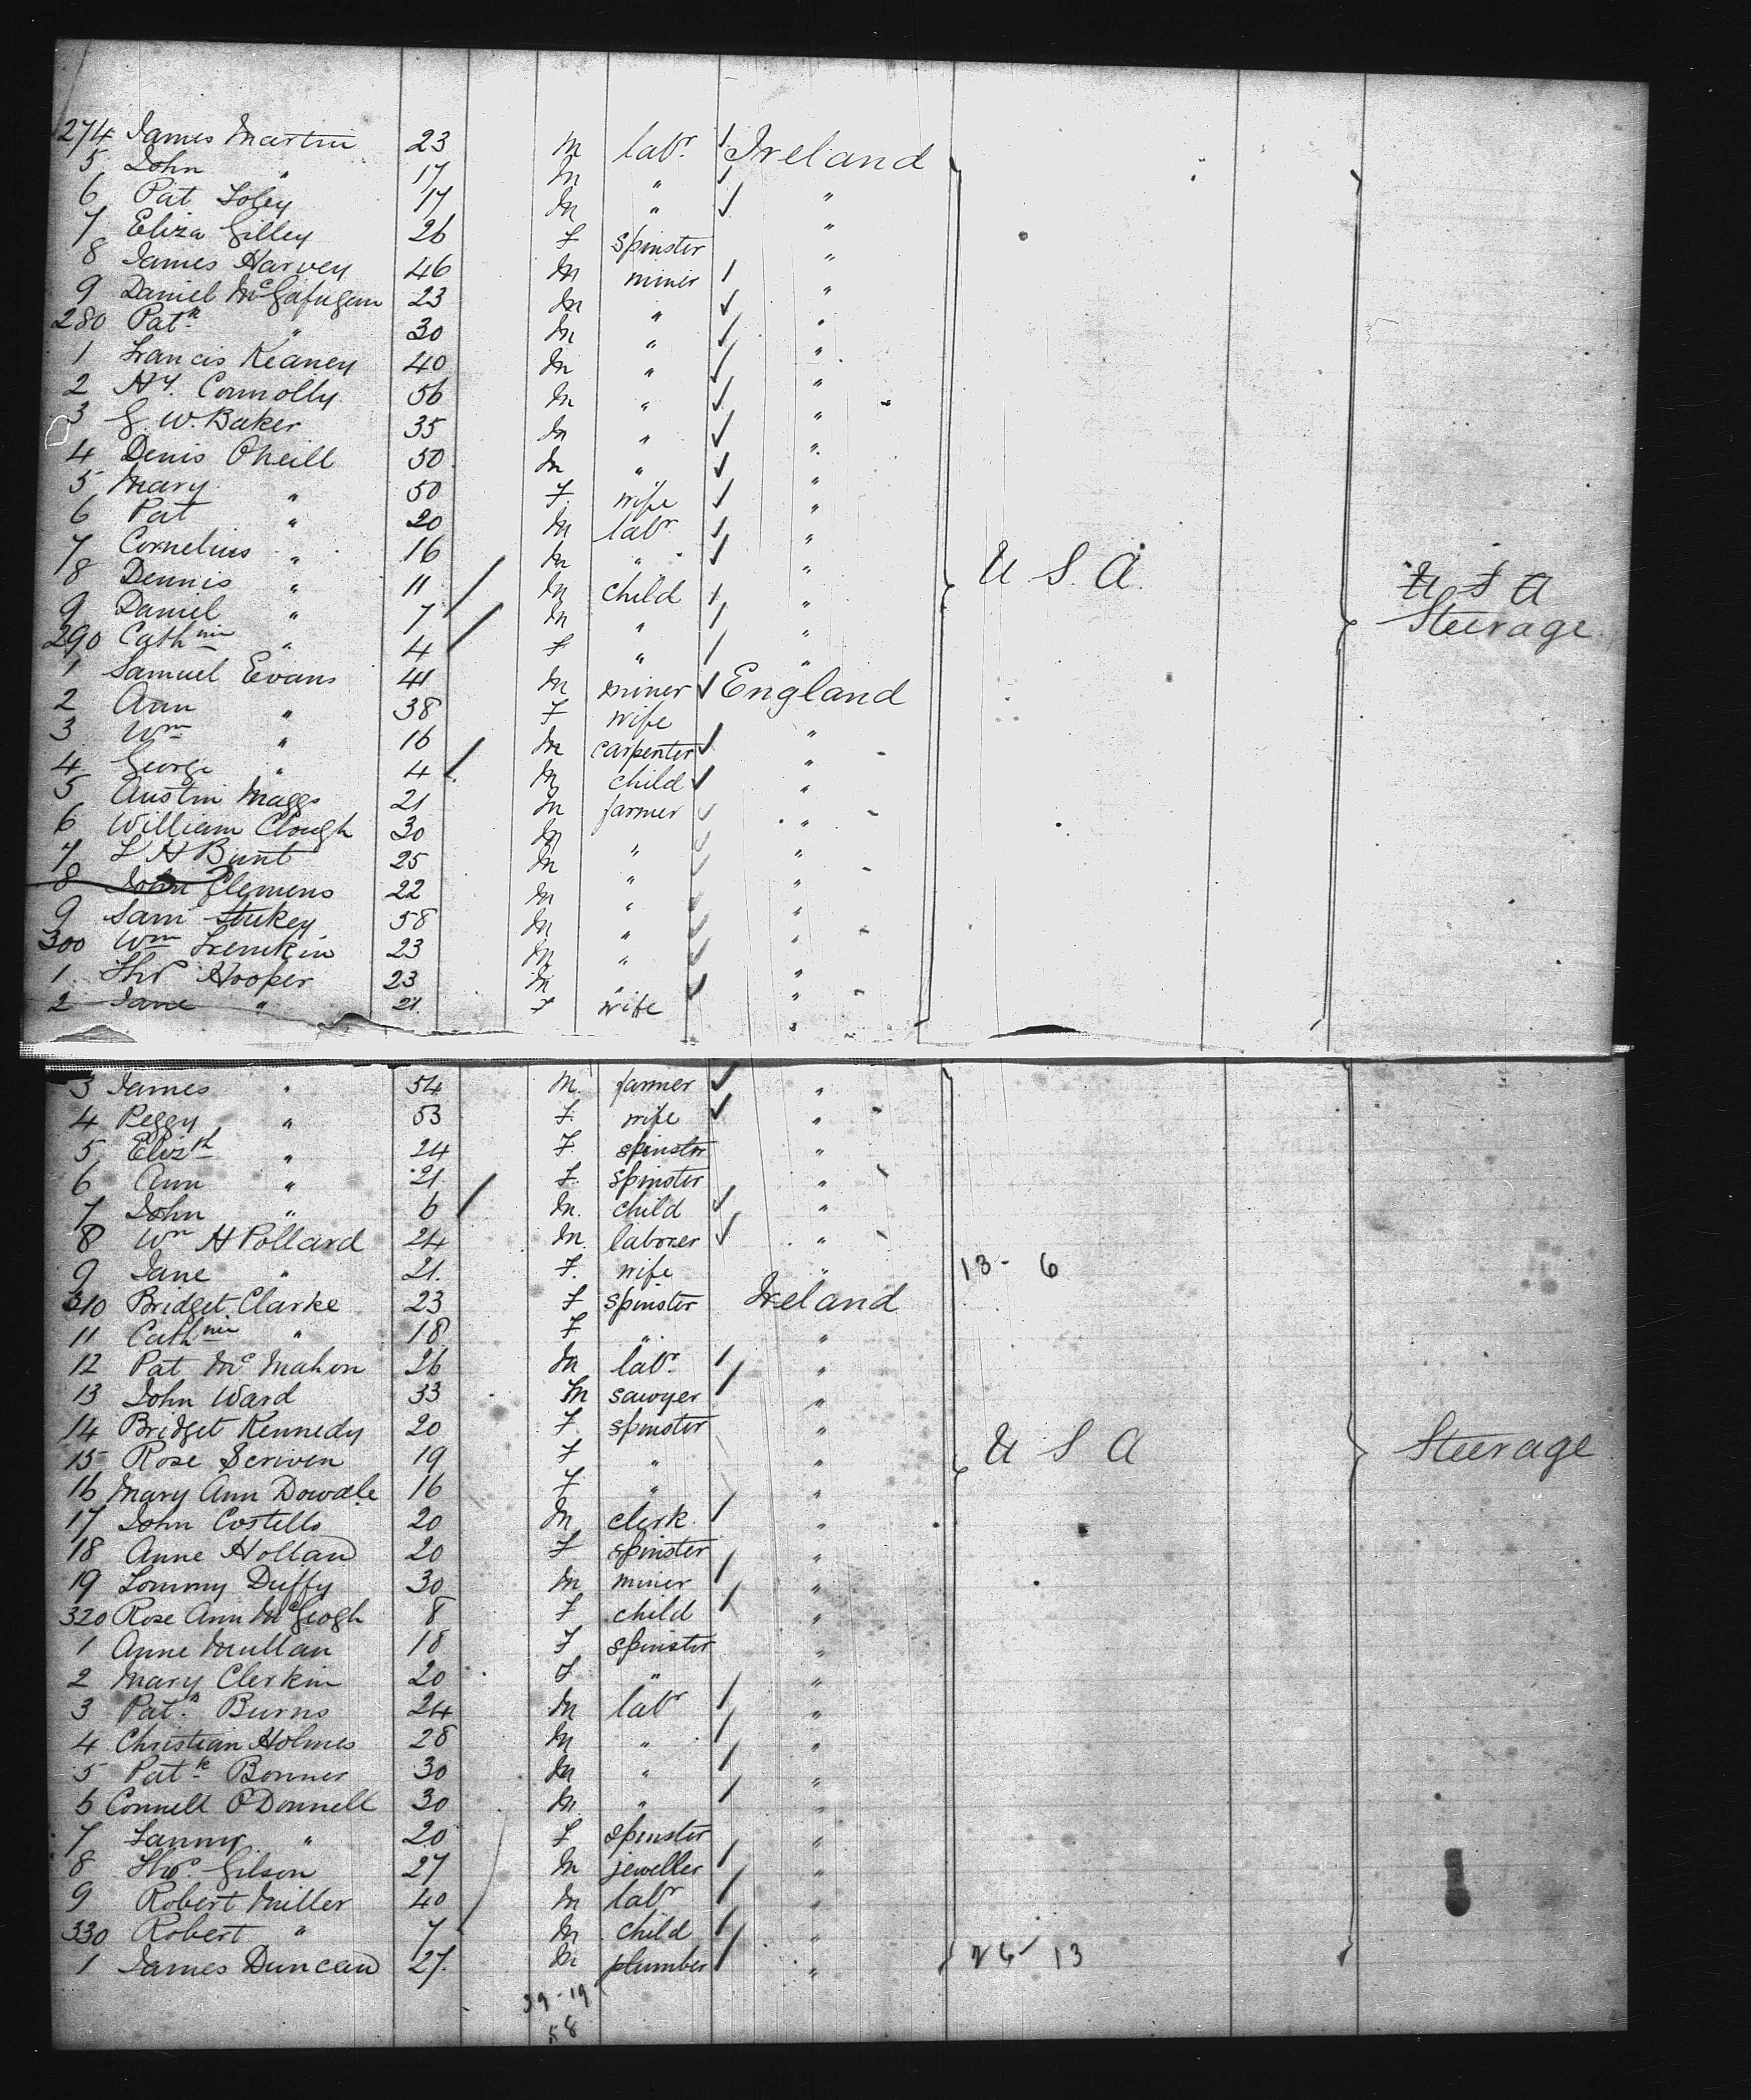 274 James Martin 23 M labr. Ireland
5 John " 17 M " "
6 Pat Foley 17 M " "
7 Eliza Gilley 26 F spinster "
8 James Harvey 46 M miner "
9 Daniel 23 M " "
280 Patk " 30 M " "
1 Francis Keaney 40 M " "
2 Hy. Connolly 56 M " "
3 G. W. Baker 35 M " "
4 Denis O'Neill 50 M " "
5 Mary " 50 F. wife "
6 Pat " 20 M labr "
7 Cornelius " 16 M " "
8 Dennis " 11 M child " U. S. A. U S A
9 Daniel " 7 M " " Steerage
290 Cathnie " 4 F " "
1 Samuel Evans 41 M miner England
2 Ann " 38 F wife "
3 Wm " 16 M carpenter "
4 George " 4 M child "
5 Austin Maggs 21 M farmer "
6 William Clough 30 M " "
7 Bunt 25 M " "
8 John Clemens 22 M " "
9 Sam Stukey 58 M " "
300 Wm 23 M " "
1 Thos Hooper 23 M " "
2 Jane " 21. F wife "
3 James " 54 M. farmer "
4 Peggy " 53 F. wife "
5 Elizth " 24 F. spinster "
6 Ann " 21 F. spinster "
7 John " 6 M. child "
8 Wm H Pollard 24 M. laborer "
9 Jane " 21. F. wife " 13 - 6
310 Bridget Clarke 23 F spinster Ireland
11 Cathnie " 18 F " "
12 Pat McMahon 26 M labr. "
13 John Ward 33 M sawyer "
14 Bridget Kennedy 20 F spinster " U S A Steerage
15 Rose Scriven 19 F " "
16 Mary Ann Dowdle 16 F " "
17 John Costello 20 M clerk. "
18 Anne Holland 20 F spinster "
19 Tommy Duffy 30 M miner "
320 Rose Ann McGeogh 8 F child "
1 Anne Mullan 18 F spinster "
2 Mary Clerkin 20 F " "
3 Patk. Burns 24 M labr "
4 Christian Holmes 28 M " "
5 Patk Bonner 30 M " "
6 Connell O'Donnell 30 M. " "
7 Fanny " 20 F spinster "
8 Thos. Gilson 27 M jeweller "
9 Robert Miller 40 M labr "
330 Robert " 7 M child "
1 James Duncan 27. M plumber " 26 - 13
39 - 19
58